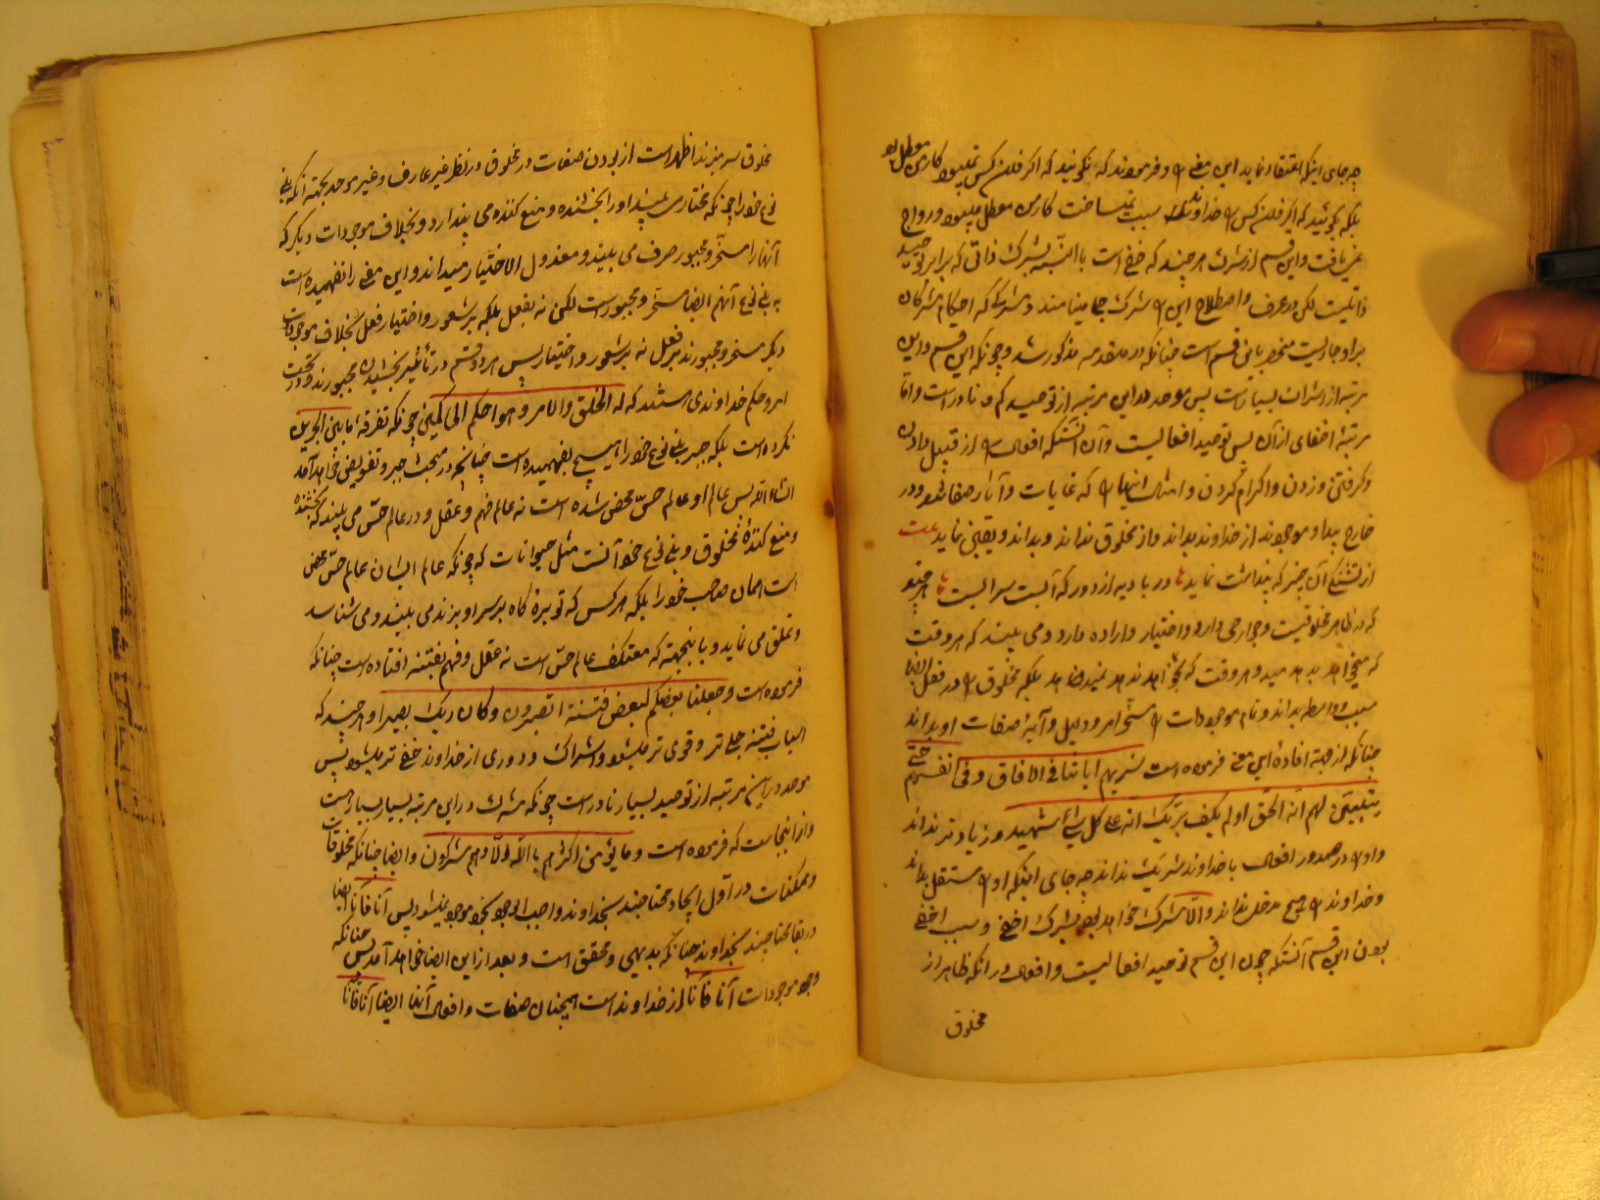 چه جای اینکه اعتقاد نماید این معنی را و فرمودند که نگوئید که اگر فلان کس نمیبود کار من معطل بود
بلکه بگوئید که اگر فلان کس را خداوند سبب نمیساخت کار من معطل میبود و رواج
نمی یافت و این قسم از شرک هر چند که خفی است بالنسبه بشرک ذاتی که برابر توحید
ذاتیست لکن در عرف و اصطلاح این را شرک جلی مینامند و شرکی که احکام مشرکان
بر او جاریست منحصر باین قسم است چنانکه در مقدمه مذکور شد و چونکه این قسم و این
مرتبه از اشراک بسیار است پس موحد در این مرتبه از توحید کم و نادر است و اما
مرتبهٔ اخفای از آن پس توحید افعالیست و آن آنستکه افعال را از قبیل دادن
و گرفتن و زدن و اکرام کردن و امثال اینها را که غایات و آثار صفاتند و در
خارج پیدا و موجودند از خداوند بداند و از مخلوق نداند و بداند و یقین نماید
از تشنگی آن چیز که پنداشت نماید تا در بادیه از دور که آبست سرابست تا هر چند
که در ظاهر مخلوقیست و جوارحی دارد و اختیار و اراده دارد و می بیند که هر وقت
که میخواهد بدهد میدهد و هر وقت که نخواهد ندهد نمیدهد بلکه مخلوق را در فعل ایضا
سبب و واسطه بداند و تمام موجودات را مسخر امر و دلیل و آیهٔ صفات او بداند
چنانکه از جهة افادهٔ این معنی فرموده است سنریهم آیاتنا فی الافاق و فی انفسهم حتی
یتبین لهم انه الحق اولم یکف بربک انه علی کل شیء شهید و زیاد تر نداند
و او را در صدور افعال با خداوند شریک نداند چه جای اینکه او را مستقل بداند
و خداوند را هیچ مدخل نداند و الا مشرک خواهد بود بشرک اخفی و سبب اخفی
بودن این قسم آنستکه چون این قسم توحید افعالیست و افعال در انکه ظاهر از
مخلوق
مخلوق سر میزند اظهر است از بودن صفات در مخلوق در نظر غیر عارف و غیر موحد بجهة آنکه بنی
نوع خود را چونکه مختار می بیند او را بخشنده و منع کننده می پندارد و بخلاف موجودات دیگر که
آنها را مسخر و مجبور صرف می بیند و معزول الاختیار میداند و این معنی را نفهمیده است
که بنی نوع آنهم ایضا مسخر و مجبور است لکن نه بفعل بلکه بر شعور و اختیار فعل بخلاف موجودات
دیگر مسخر و مجبورند بر فعل نه بر شعور و اختیار پس هر دو قسم در تأثیر بخشیدن مجبورند و در تحت
امر و حکم خداوندی هستند که له الخلق والامر و هو احکم الحاکمین چونکه تفرقه مابین الجبرین
نکرده است بلکه جبر بنی نوع خود را هیچ نفهمیده است چنانچه در مبحث جبر و تفویض خواهد آمد
انشاء الله پس عالم او عالم حس محض شده است نه عالم فهم و عقل و در عالم حس می بیند که بخشنده
و منع کنندهٔ مخلوق و بنی نوع خود آنست مثل حیوانات که چونکه عالم ایشان عالم حس محض
است همان صاحب خود را بلکه هر کس که توبرهٔ کاه بر سر او بزند می بیند و می شناسد
و تملق می نماید و باینجهة که معتکف عالم حس است نه عقل و فهم بفتنه افتاده است چنانکه
فرموده است و جعلنا بعضکم لبعض فتنة اتصبرون و کان ربک بصیرا و هر چند که
اسباب فتنه جلی تر و قوی تر میشود اشراک و دوری از خداوند خفی تر میشود پس
موحد در این مرتبه از توحید بسیار نادر است چونکه شرک در این مرتبه بسیار بسیار است
و از اینجاست که فرموده است و ما یؤمن اکثرهم بالله الا و هم مشرکون و ایضا چنانکه مخلوقات
و ممکنات در اول ایجاد محتاجند بخداوند و واجب الوجود بخود موجود نمیشود پس آنا فآنا ایضا
در بقا محتاجند بخداوند چنانکه بدیهی و محقق است و بعد از این ایضا خواهد آمد پس چنانکه
وجود موجودات آنا فآنا از خداوند است همچنان صفات و افعال آنها ایضا آنا فآنا